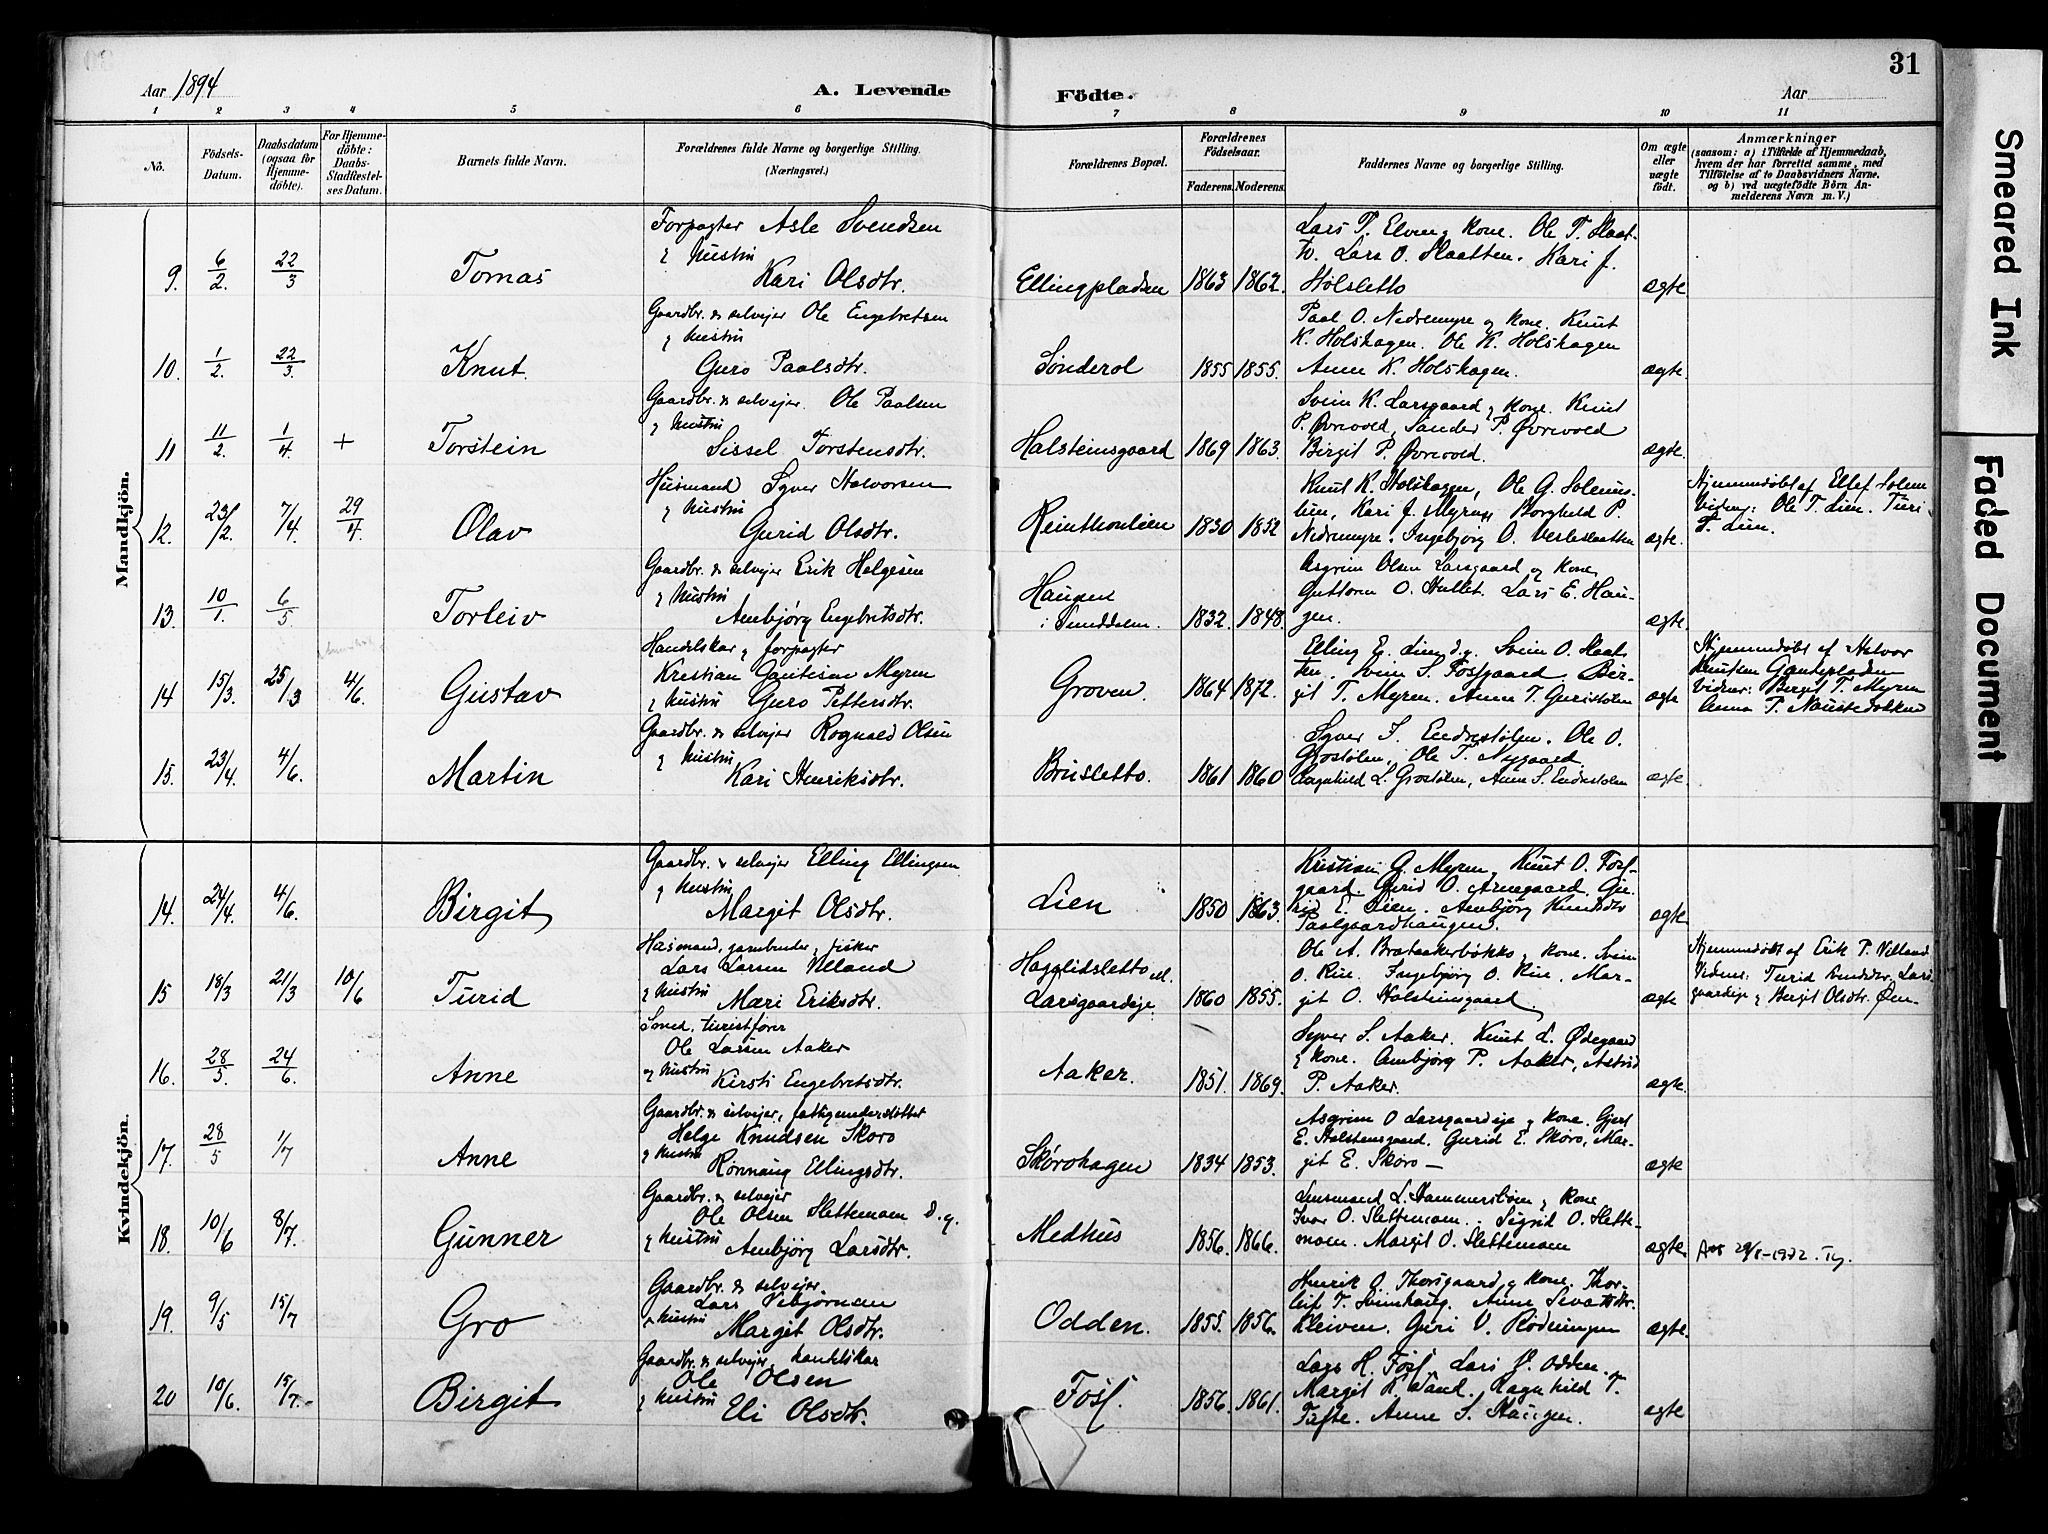 31
Aar 1894
A. Levende Födte.
Aar
1 2 3 4 5 6 7 8 9 10 11
No.
Födsels-Datum.
Daabsdatum (ogsaa for Hjemmedöbte).
For Hjemmedöbte: Daabs-Stadfestelses Datum.
Barnets fulde Navn.
Forældrenes fulde Navne og borgerlige Stilling. (Næringsvei.)
Forældrenes Bopæl.
Forældrenes Födselsaar.
Faderens. Moderens.
Faddernes Navne og borgerlige Stilling.
Om ægte eller uægte födt.
Anmærkninger
(saasom: a) i Tilfælde af Hjemmedaab, hvem der har forrettet samme, med Tilföielse af to Daabsvidners Navne, og b) ved uægtefödte Börn Anmelderens Navn m. V.)
Mandkjön.
9. 6/2. 22/3 Tomas
Forpagter Asle Svendsen
& Hustru
Kari Olsdtr.
Ellingpladsen 1863 1862.
Lars T. Elven & kone. Ole T. Slaat-
to. Lars O. Slaatten. Kari J.
Holsletto
ægte
10. 1/2. 22/3. Knut.
Gaardbr. & selvejer Ole Engebretsen
& Hustru
Guro Paalsdtr.
Sønderol 1855 1855.
Paal O. Nedremyre og kone. Knut
K. Holshagen. Ole K. Holshagen
Anne K. Holshagen.
ægte.
11 11/2. 1/4. + Torstein
Gaardbr. & selvejer. Ole Paalsen
& Hustru
Sissel Torstensdtr.
Halsteinsgaard 1869 1863.
Svein K. Larsgaard & kone. Knut
P. Øvrevold, Sander P. Øvrevold
Birgit P. Øvrevold.
ægte.
12. 23/2. 7/4. 29/4. Olav
Husmand Syver Halvorsen
& Hustru
Gurid Olsdtr.
Reinthonlien 1830 1852
Knut K. Holshagen, Ole G. Solems-
lien, Kari J. Myren, Borghild P.
Nedremyre. Ingebjørg O. Vesleslaatten
ægte.
Hjemmedøbt af Ellef Solem
Vidner: Ole T. Lien. Turi
T. Lien.
13. 10/1. 6/5. Torleiv
Gaardbr. & selvejer Erik Helgesen
& Hustru
Ambjørg Engebretsdtr.
Haugen
i Sunddalen. 1832. 1848.
Asgrim Olsen Larsgaard og kone
Guttorm O. Hullet. Lars E. Hau-
gen.
ægte.
14 15/3. 25/3 4/6. Gustav
Handelskar & forpagter
Kristian Gautesen Myren
& Hustru Guro Pettersdtr.
Groven 1864 1872.
Elling E. Lien d.y. Svein O. Slaat-
ten. Svein S. Fosgaard. Bir-
git T. Myren. Anne T. Guristolen
ægte
Hjemmedøbt af Halvor
Knutsen Gautepladsen
Vidner: Birgit T. Myren
Anna P. Naustedokken
15. 23/4. 4/6. Martin
Gaardbr. & selvejer Rognald Olsen
& Hustru
Kari Henriksdtr.
Brusletto. 1861 1860
Syver S. Endrestølen. Ole O.
Grostølen. Ole T. Nygaard.
Ragnhild L. Grostølen, Anne S. Endrestolen
ægte.
Kvindekjön.
14. 24/4. 4/6. Birgit
Gaardbr. & selvejer Elling Ellingsen
& Hustru
Margit Olsdtr.
Lien 1850 1863.
Kristian G. Myren, Knut O. Fos-
gaard. Gurid O. Arnegaard. Gu-
rid E. Lien. Ambjørg Knutsdtr
Paalgaardhaugen.
ægte
15 18/3 21/3 10/6 Turid
Husmand, garnbinder, fisker
Lars Larsen Villand
& Hustru
Mari Eriksdtr.
Hagelidsletto el.
Larsgaardeje. 1860 1855.
Ole A. Brataakerbøkko & kone. Svein
O. Rue. Ingebjørg O. Rue. Mar-
git O. Holsteinsgaard.
ægte
Hjemmedøbt af Erik P. Villand
Vidner: Turid Knudsdtr. Lars-
gaardeje & Bergit Olsdtr. Øen-
16. 28/5. 24/6. Anne
Smed, turistfører
Ole Larsen Aaker
og Hustru
Kirsti Engebretsdtr.
Aaker. 1851 1869.
Syver S. Aaker. Knut L. Ødegaard
& kone. Ambjørg P. Aaker, Astrid
P. Aaker.
ægte.
17. 28/5 1/7 Anne
Gaardbr. & selvejer, fattigunderstøttet
Helge Knudsen Skoro
& Hustru
Rønnaug Ellingsdtr.
Skørohagen 1834 1853.
Asgrim O Larsgaardeje & kone. Gjert
E. Holstensgaard. Gurid E. Skøro, Mar-
git E. Skøro —
ægte
18. 10/6 8/7. Gunner
Gaardbr. & selvejer
Ole Olsen Slettemoen d. y.
& Hustru
Ambjørg Larsdtr.
Medhus 1856. 1866.
Lensmand L. Hammersbøen & kone
Ivar O. Slettemoen. Sigrid O. Slette-
moen. Margit O. Slettemoen
ægte
19. 9/5 15/7 Gro
Gaardbr. & selvejer.
Lars Vebjørnsen
& Hustru
Margit Olsdtr.
Odden. 1855. 1856.
Henrik O. Thorsgaard & kone. Thor-
leif T. Sveinhaug. Anne Sevatsdtr.
Kleiven. Guri V. Rodningen
ægte.
20 10/6. 15/7. Birgit
Gaardbr. & selvejer, handelskar
Ole Olsen
& Hustru
Eli Olsdtr.
Foss. 1856. 1861.
Lars H. Foss, Lars O. Odden.
Margit K. Sand. Ragnhild T.
Tufte. Anne S. Haugen.
ægte
Smeared Ink
Faded Document